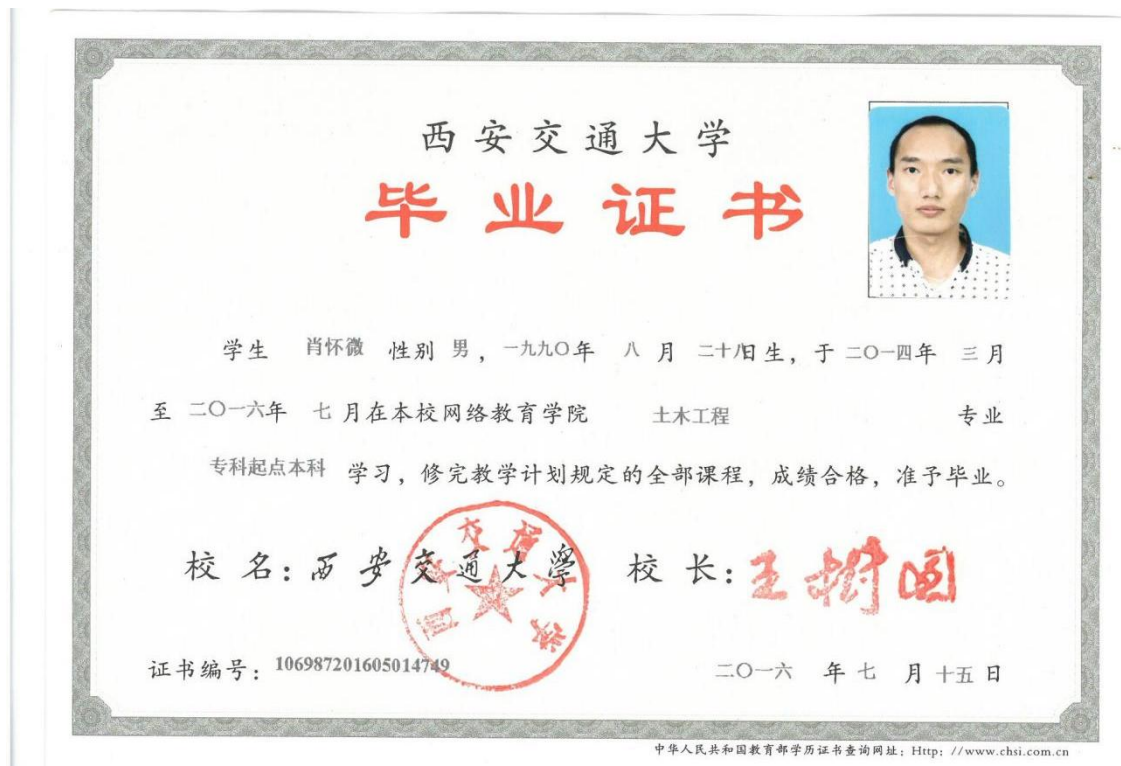 西安交通大学
毕业证书
学生 肖怀微 性别 男，一九九〇年 八 月 二十八日生，于 二〇一四年 三月
至 二〇一六年 七 月在本校网络教育学院 土木工程 专业
专科起点本科 学习，修完教学计划规定的全部课程，成绩合格，准予毕业。
校 名：西安交通大学 校 长：王树国
西安交通大学
证书编号：106987201605014749 二〇一六 年 七 月 十五 日
中华人民共和国教育部学历证书查询网址：Http: //www.chsi.com.cn